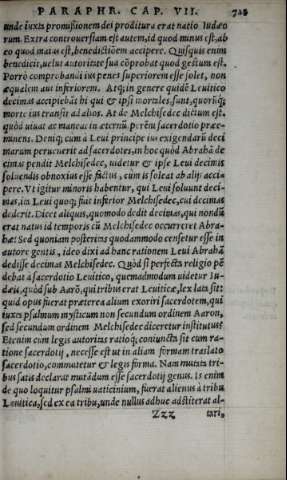 PARAPHR. CAP. VII. 725
unde iuxta promissionem dei proditura erat natio Iudæo
rum. Extra controuersiam est autem, id quod minus est, ab
eo quod maius est, benedictiõem accipere. Quisquis enim
benedicit, uelut autoritate sua cõprobat quod gestum est.
Porrò comprobandi ius penes superiorem esse solet, non
æqualem aut inferiorem. Atq; in genere quidẽ Leuitico
decimas accipiebãt hi qui & ipsi mortales sunt, quorũq;
morte ius transit ad alios. At de Melchisedec dictum est,
quòd uiuat ac maneat in æternũ perẽni sacerdotio præe-
minens. Deniq; cum à Leui principe ius exigendarũ deci
marum peruenerit ad sacerdotes, in hoc quòd Abrahã de
cimas pendit Melchisedec, uidetur & ipse Leui decimis
soluendis obnoxius esse factus, cum is soleat ab alijs acci=
pere. Vt igitur minoris habentur, qui Leui soluunt deci=
mas, ita Leui quoq; fuit inferior Melchisedec, cui decimas
dederit. Dicet aliquis, quomodo dedit decimas, qui nondũ
erat natus id temporis cũ Melchisedec occurreret Abra=
hæ? Sed quoniam posteritas quodammodo censetur esse in
autore gentis, ideo dixi ad hanc rationem Leui Abrahã
dedisse decimas Melchisedec. Quòd si perfecta religio pẽ
debat à sacerdotio Leuitico, quemadmodum uidetur Iu=
dæis, quòd sub Aarõ, qui tribus erat Leuiticæ, lex lata sit:
quid opus fuerat præterea alium exoriri sacerdotem, qui
iuxta psalmum mysticum non secundum ordinem Aaron,
sed secundum ordinem Melchisedec diceretur institutus?
Etenim cum legis autoritas ratioq; coniuncta sit cum ra=
tione sacerdotij, necesse est ut in aliam formam translato
sacerdotio, commutetur & legis forma. Nam mutata tri=
bus satis declarat mutãdum esse sacerdotij genus. Is enim
de quo loquitur psalmi uaticinium, fuerat alienus à tribu
Leuitica, sed ex ea tribu, unde nullus adhuc adstiterat al=
Zzz tari,